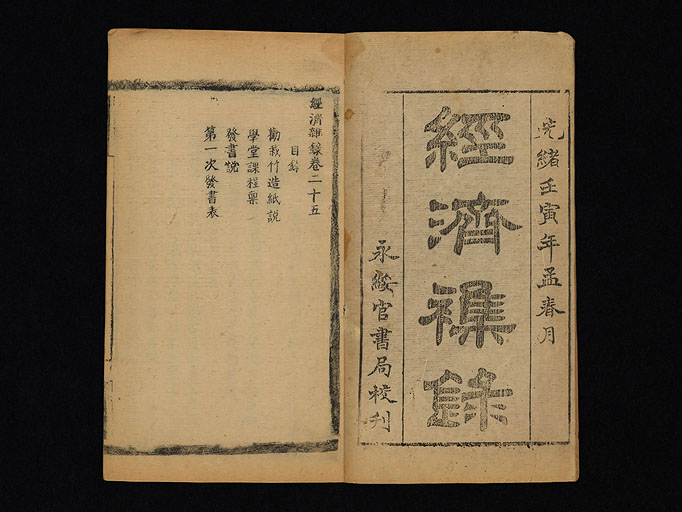 光緒壬寅年孟春月
經濟襍錄
永綏官書局校刊
經濟雜錄卷二十五
目錄
勸栽竹造紙說
學堂課程稟
發書說
第一次發書表